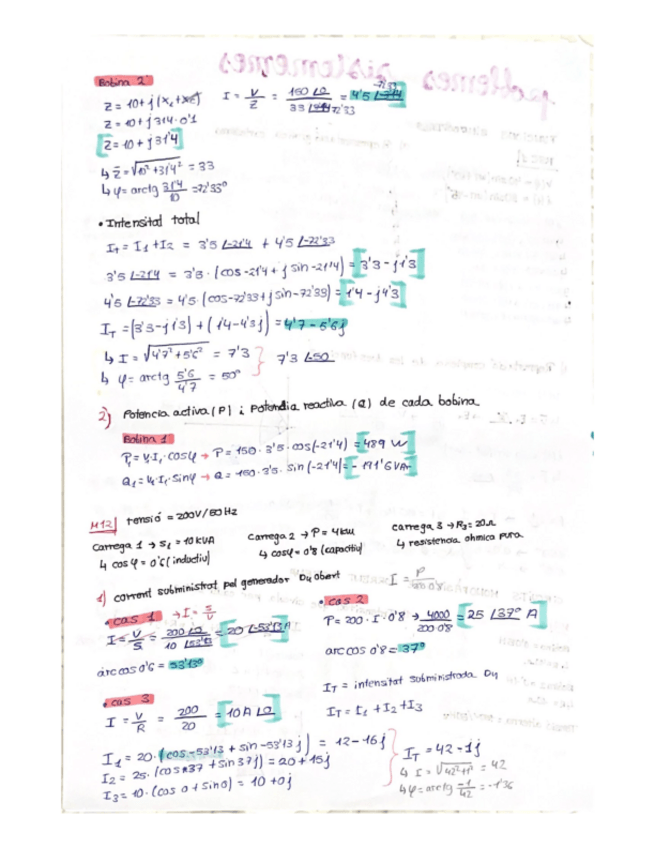 problemes sistemes
Bobina 2
Z = 10 + j(XL + XC)
Z = 10 + j 314 · 0'1
Z = 10 + j 31'4
I = V/Z = 150∠0 / 33∠72'33 = 4'5∠-72'33
↳ Z = √10² + 31'4² = 33
↳ φ = arctg 31'4/10 = 72'33°
• Intensitat total
IT = I1 + I2 = 3'5∠-21'4 + 4'5∠-72'33
3'5∠-21'4 = 3'5 · (cos -21'4 + j sin -21'4) = 3'3 - j1'3
4'5∠-72'33 = 4'5 · (cos -72'33 + j sin -72'33) = 1'4 - j4'3
IT = (3'3 - j1'3) + (1'4 - 4'3j) = 4'7 - 5'6j
↳ I = √4'7² + 5'6² = 7'3
↳ φ = arctg 5'6/4'7 = 50°
7'3∠-50
2) Potencia activa (P) i Potencia reactiva (Q) de cada bobina
Bobina 1
P1 = V·I1·cosφ → P = 150·3'5·cos(-21'4) = 489 W
Q1 = V·I1·sinφ → Q = 150·3'5·sin(-21'4) = -191'6 VAr
M12 tensió = 200V/50Hz
Carrega 1 → S1 = 10 KVA
↳ cos φ = 0'6 (inductiu)
Carrega 2 → P = 4kW
↳ cosφ = 0'8 (capacitiu)
Carrega 3 → R3 = 20Ω
↳ resistencia ohmica pura.
1) corrent subministrat pel generador Du obert
I = P
• cas 1 → I = S/V
I = V/S = 200∠0 / 10∠53'13 = 20∠-53'13 A
arc cos 0'6 = 53'13°
• cas 2
P = 200 · I · 0'8 → 4000 / 200 0'8 = 25∠37° A
arc cos 0'8 = 37°
• cas 3
I = V/R = 200/20 = 10A∠0
IT = intensitat subministrada Du
IT = I1 + I2 + I3
I1 = 20 · (cos -53'13 + sin -53'13j) = 12 - 16j
I2 = 25 · (cos 37 + sin 37j) = 20 + 15j
I3 = 10 · (cos 0 + sin 0) = 10 + 0j
IT = 42 - 1j
↳ I = √42² + 1² = 42
↳ φ = arctg -1/42 = -1'36